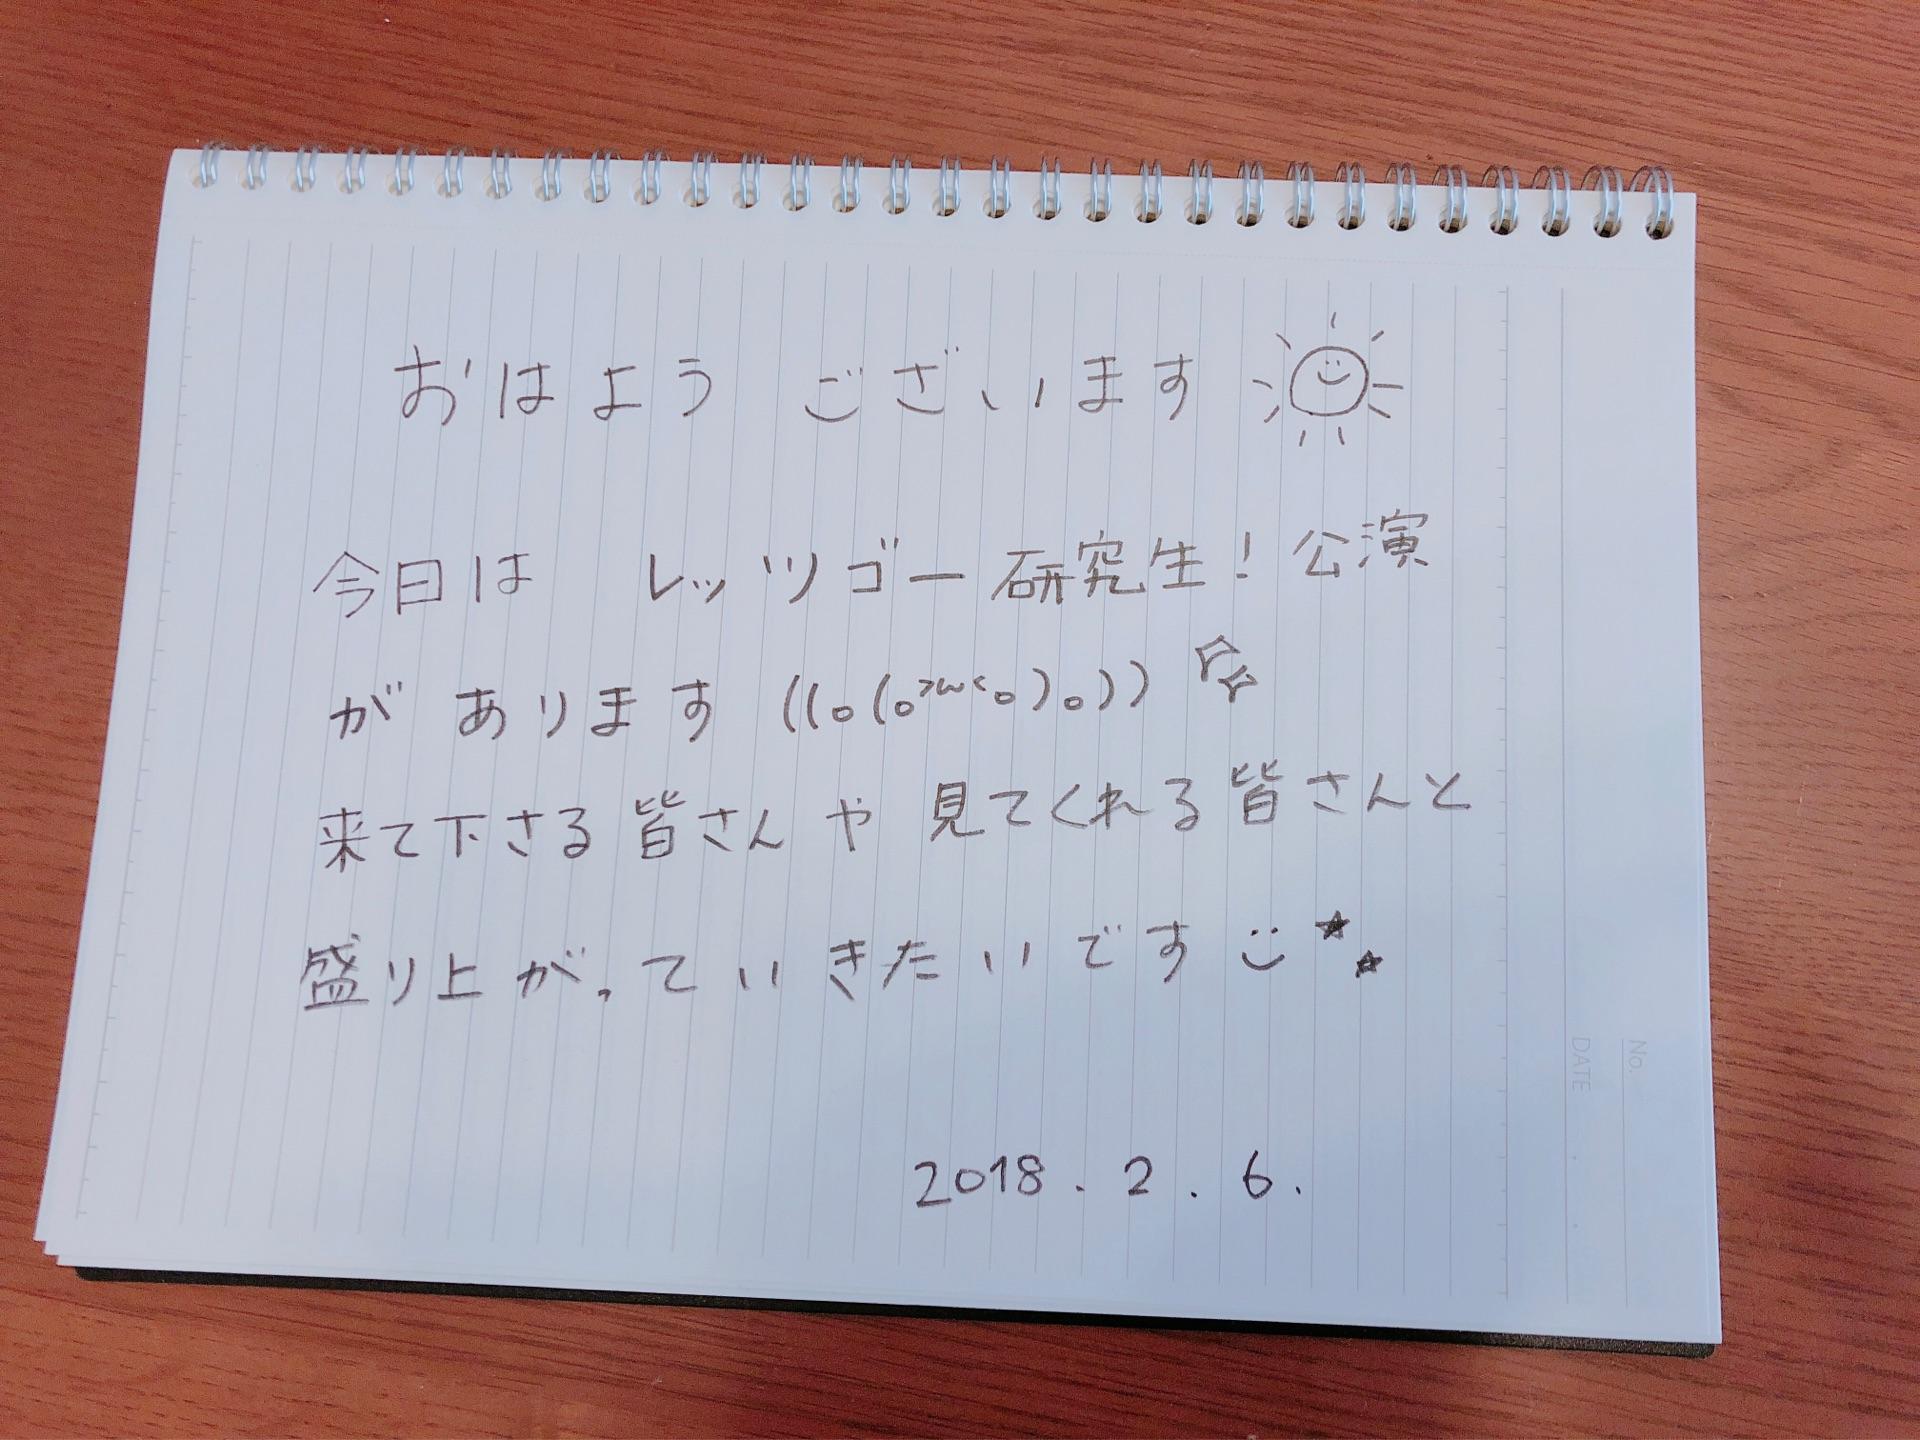 おはよう ございます
今日は レッツゴー研究生！公演
が あります ((o(o>ω<o)o))
来て下さる皆さんや見てくれる皆さんと
盛り上がっていきたいです
2018.2.6.
No.
DATE